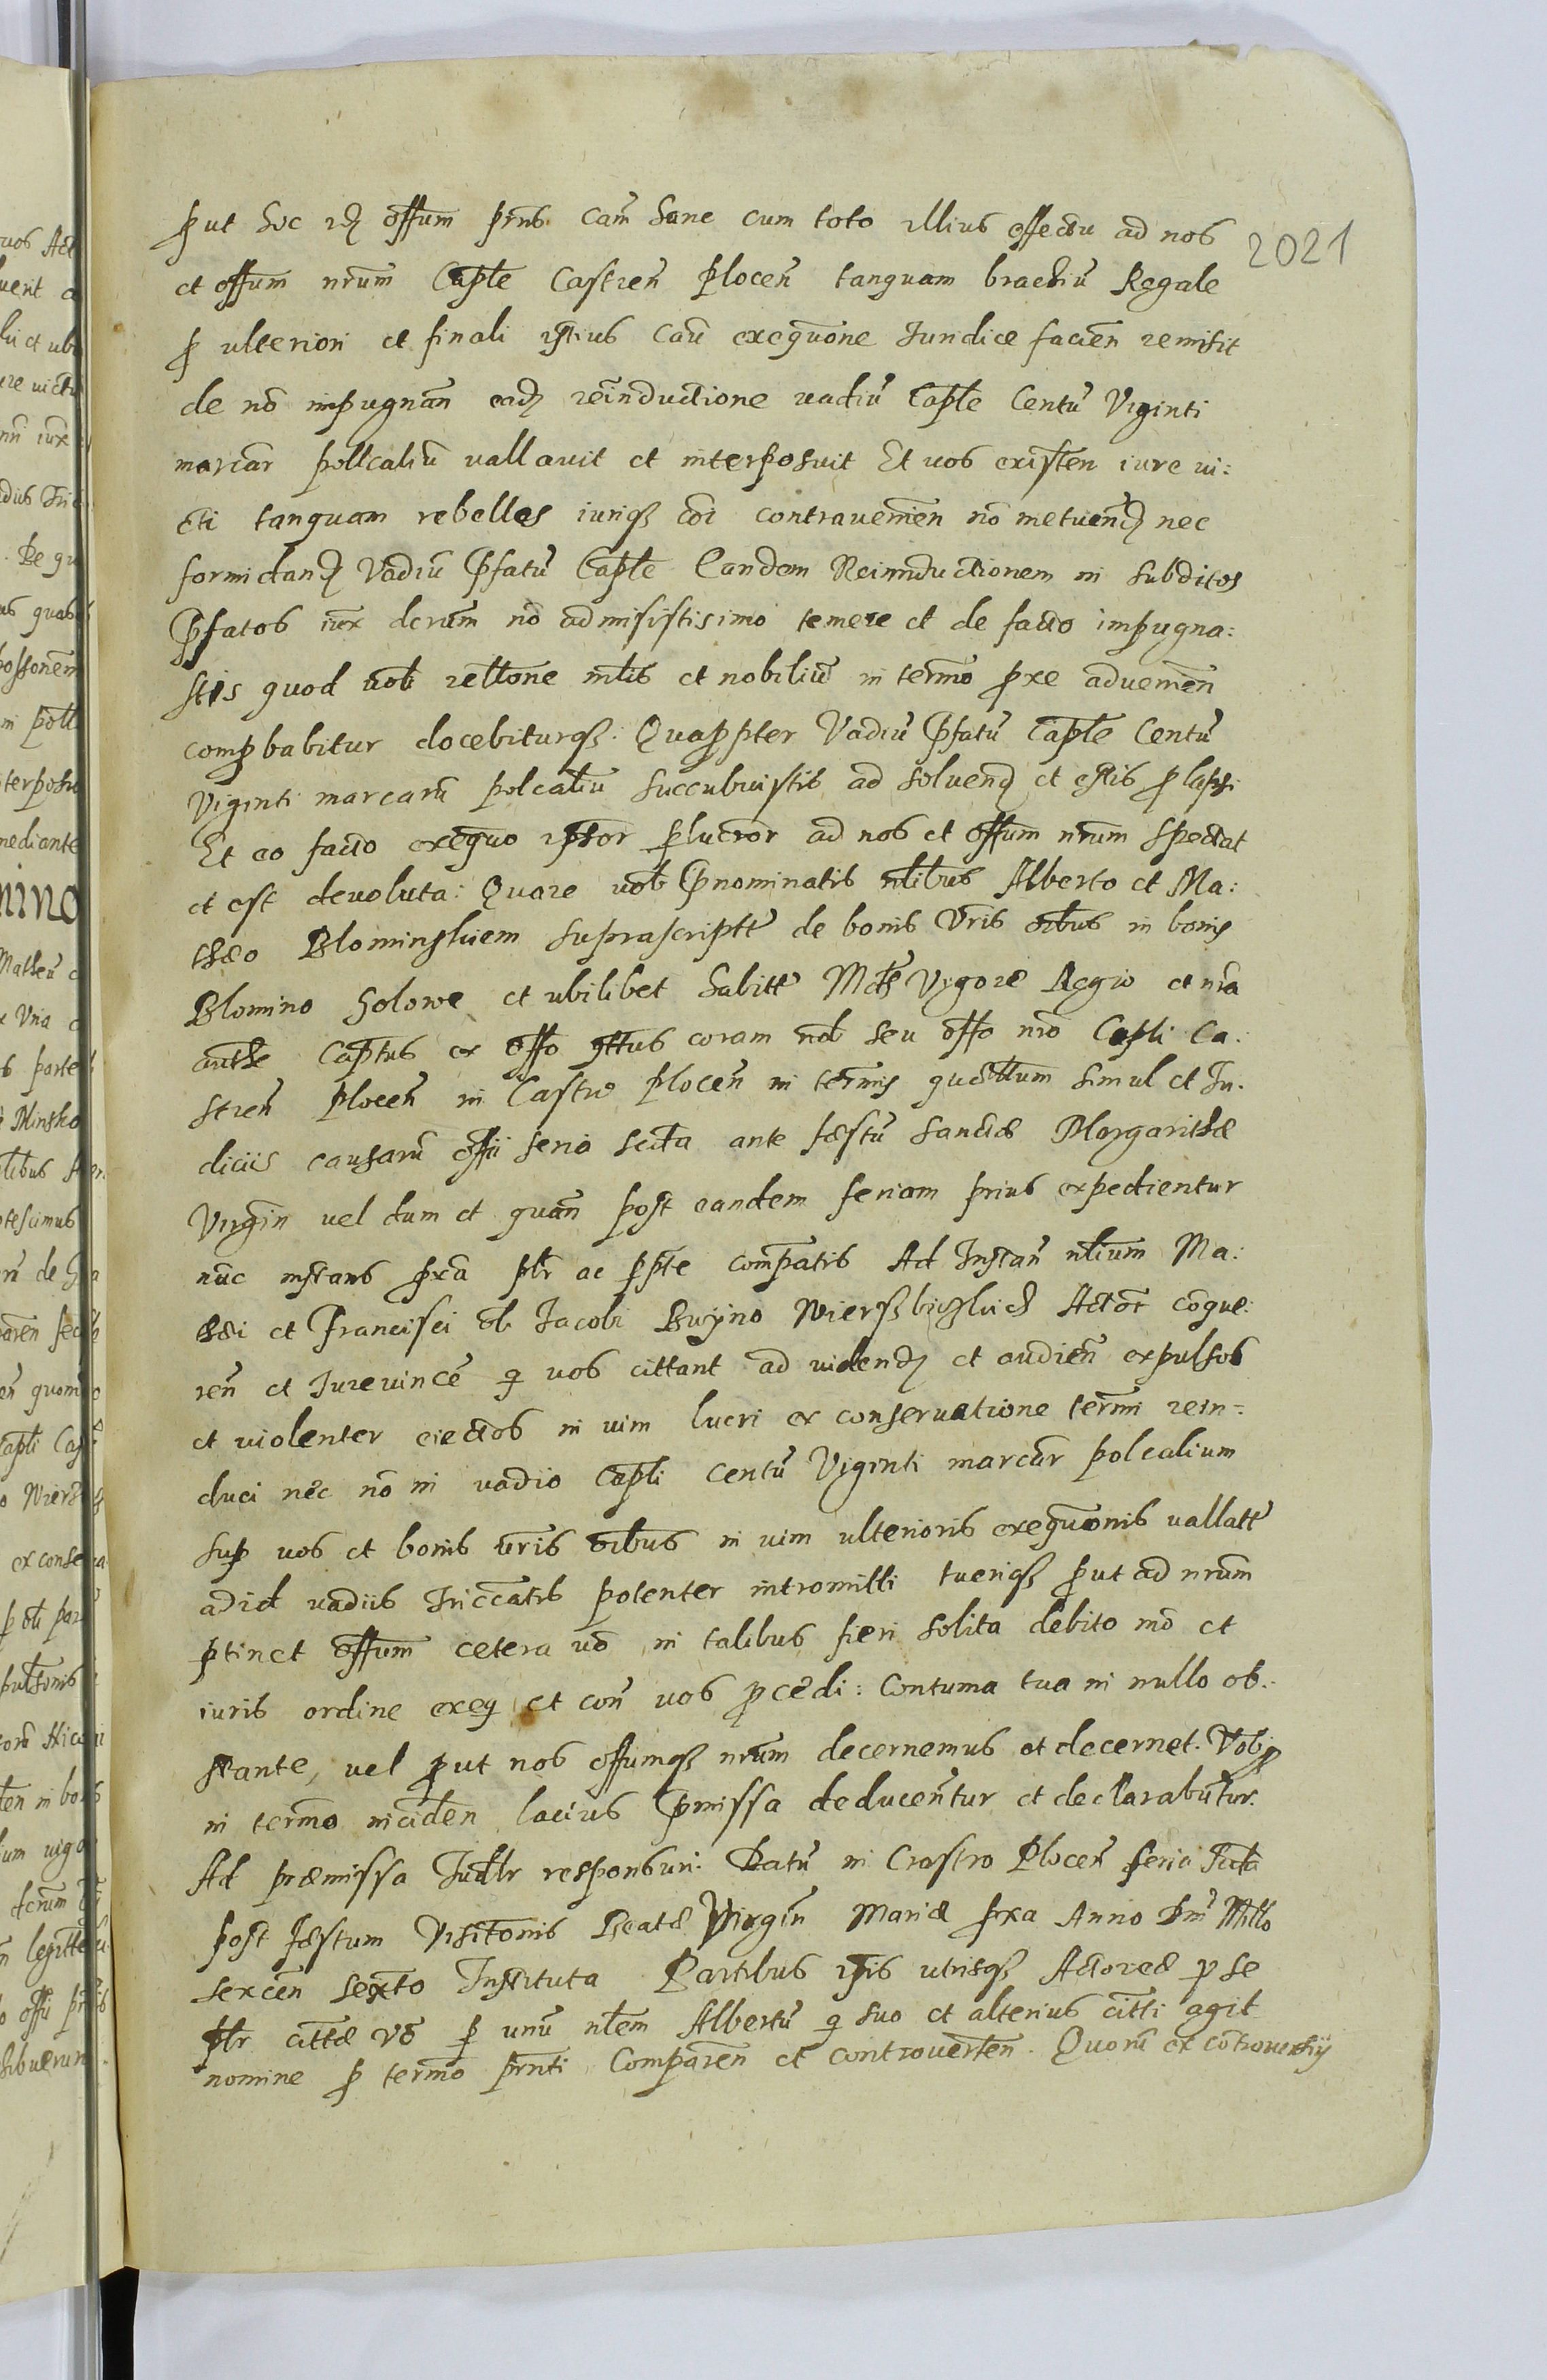 ꝓut hoc idꝫ offum prñs. cam̃ hanc cum toto illius effectu ad nos
2021
et offum nr̃um Caplẽ Castren̄ Plocen̄ tanquam brachiũ Regale
ꝓ ulteriori et finali istius cau exeqũone Juridice facien̄ remisit
de nõ impugnañ eadꝫ reinductione vadiũ Caplẽ Centũ Viginti
marcar̃ pollcaliũ vallavit et interposuit Et vos existen̄ iure vi:
cti tanquam rebelles iurisqꝫ cõi contravenien̄ nõ metuen̄d nec
formidand Vadiũ Pfatũ Caplẽ Eandem Reinnductionem in subditos
Pfatos iux̃ decr̃um nõ admisistisimo temere et de facto impugna:
stis quod vob rellõne nlis et nobiliũ in termõ ꝓxe advenien̄
comꝓbabitur docebiturqꝫ. Quaꝓpter Vadiũ Pfatũ Caplẽ Centũ
Viginti marcarũ polcaliũ succubuistis ad solvend et estis ꝓlapsi
Et eo facto exequo ipsor ꝑlucror ad nos et offum nr̃um spectat
et est devoluta: Quare vob Pnominatis nlibus Alberto et Ma:
thæo Blominskiem suprascriptt de bonis Vr̃is oĩbus in bonis
Blomino Golowe et ubilibet habitt Mdt Vygore Regio et nr̃a
authe Captus ex offo cittus coram nob seu offo nr̃o Capli Ca:
stren̄ Plocen̄ in Castro Plocen̄ in termis querellum simul et Ju:
diciis causarũ offii feria sexta ante fæstũ Sanctæ Margarithæ
Virgin̄ vel dum et quan̄ post eandem feriam prius expedientur
nũc instans ꝓxa plr̃ ac ꝑpte compatis Ad Instan̄ nlium Ma:
thæi et Francisci ol Jacobi Buyno Wierzbiczkich Actor̃ cõque:
ren̄ et Jurevince qi vos cittant ad videndꝫ et audien̄ expulsos
et violenter eiectos in vim lucri ex conservatione termi rein-
duci nec nõ in vadio Capli Centũ Viginti marcar̃ polcalium
supꝑ vos et bonis vr̃is oĩbus in vim ulterioris exequõnis vallatt
adid vadiis Triccatis potenter intromitti tueriqꝫ ꝓut ad nr̃um
ꝑtinet offum cetera vo in talibus fieri solita debito mo et
iuris ordine exeq et con̄ vos ꝓcedi: Contuma tua in nullo ob:
stante, vel ꝓut nos offumqꝫ nr̃um decernemus et decernet. Vobqꝫ
in termõ inciden̄ lacius Pmissa deducentur et declarabuntur.
Ad præmissa Judlr responsuri. Datũ in Crastro Plocen̄ feria sexta
post fæstum Visitõnis Beatæ Virgin̄ Mariæ ꝓxa Anno Dnĩ Millo
sexcen̄ sexto Instituta Partibus istis utrisqꝫ Actoreæ ꝑ se
plr cittæ vo ꝑ unũ nlem Albertũ qi suo et alterius citti agit
nomine ꝓ termõ prñti Comparen̄ et controverten̄. Quorũ ex cõtroversij